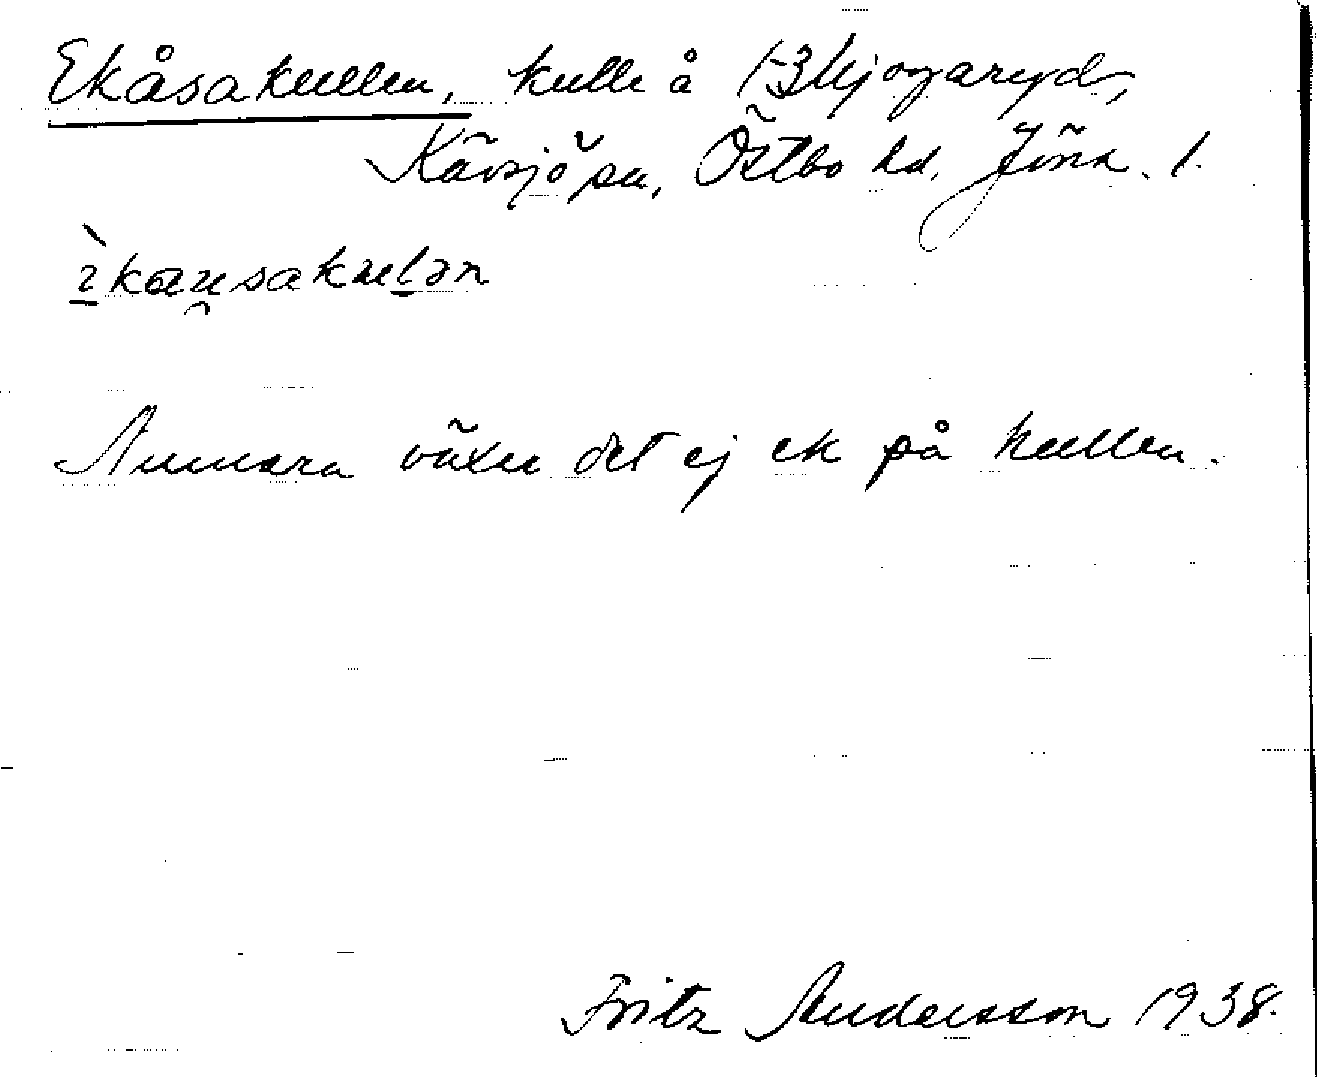 Ekåsakullen, kulle å 1-3 Ljogaryd,
Kävsjö sn, Östbo hd, Jönk. l.
ìkäusakulən
Numera växer det ej ek på kullen.
Fritz Andersson 1938.